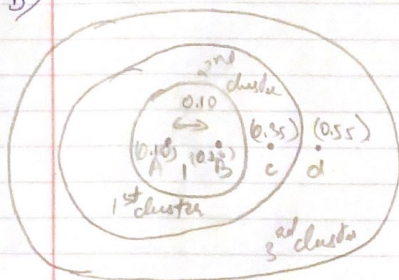 B)
2nd
cluster
0.10
(0.35) (0.55)
(0.10)
A B c d
1st cluster
3rd cluster